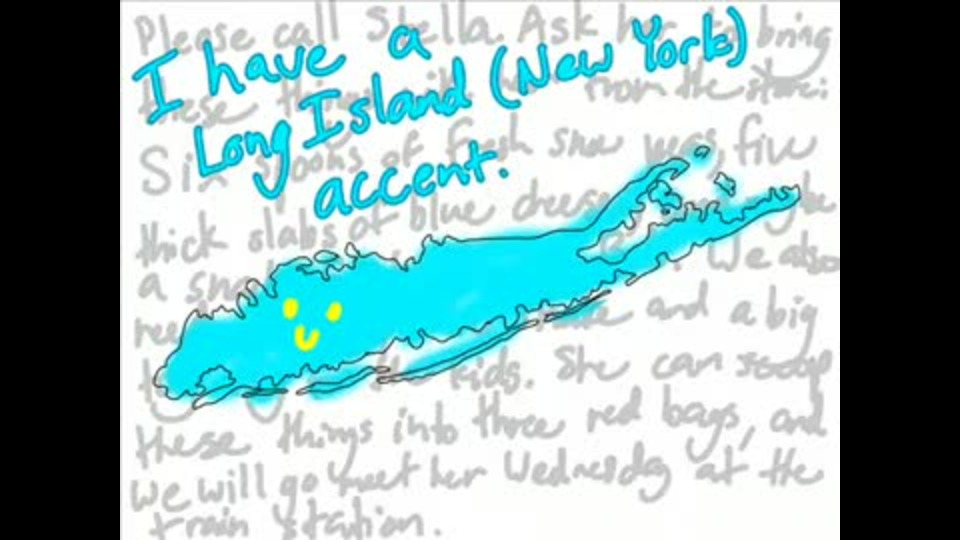 I have a
Long Island (New York)
accent.
Please call Stella. Ask her to bring
these things from the store:
Six spoons of fresh snow peas, five
thick slabs of blue cheese
a We also
and a big
the kids. She can scoop
these things into three red bags, and
we will go meet her Wednesday at the
train station.